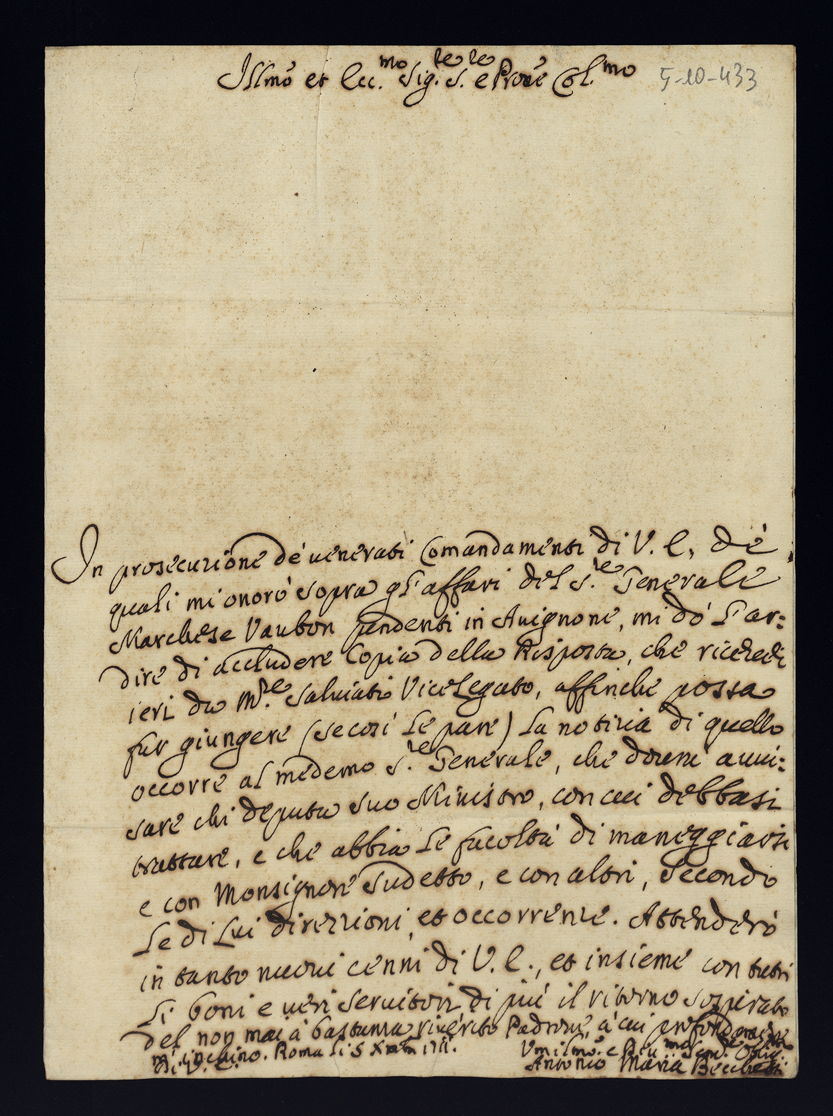 Illmo et Ecc.mo Sig.re S.re e Prone Col.mo 5-10-433
In prosecuzione de' venerati Comandamenti di V. E, de'
quali mi onorò sopra gl'affari del S.re Generale
Marchese Vaubon pendenti in Avignone, mi dò l'ar=
dire di accludere Copia della Risposta, che ricevei
ieri da M.re Salviati Vicelegato, affinche possa
far giungere (se così le pare) la notizia di quello
occorre al medemo S.re Generale, che dovrà avvi=
sare chi deputa suo Ministro, con cui debbasi
trattare, e che abbia le facoltà di maneggiarsi
e con Monsignore sudetto, e con altri, secondo
le di lui direzzioni, et occorrenze. Attenderò
in tanto nuovi cenni di V. E., et insieme con tutti
li boni e veri servitori di più il ritorno sospirato
del non mai à bastanza riverito Padrone, à cui profondamente
m'inchino. Roma li 5 Xmbre 1711.
Di V. E.
Umilmo. e Obligmo
Antonio Maria